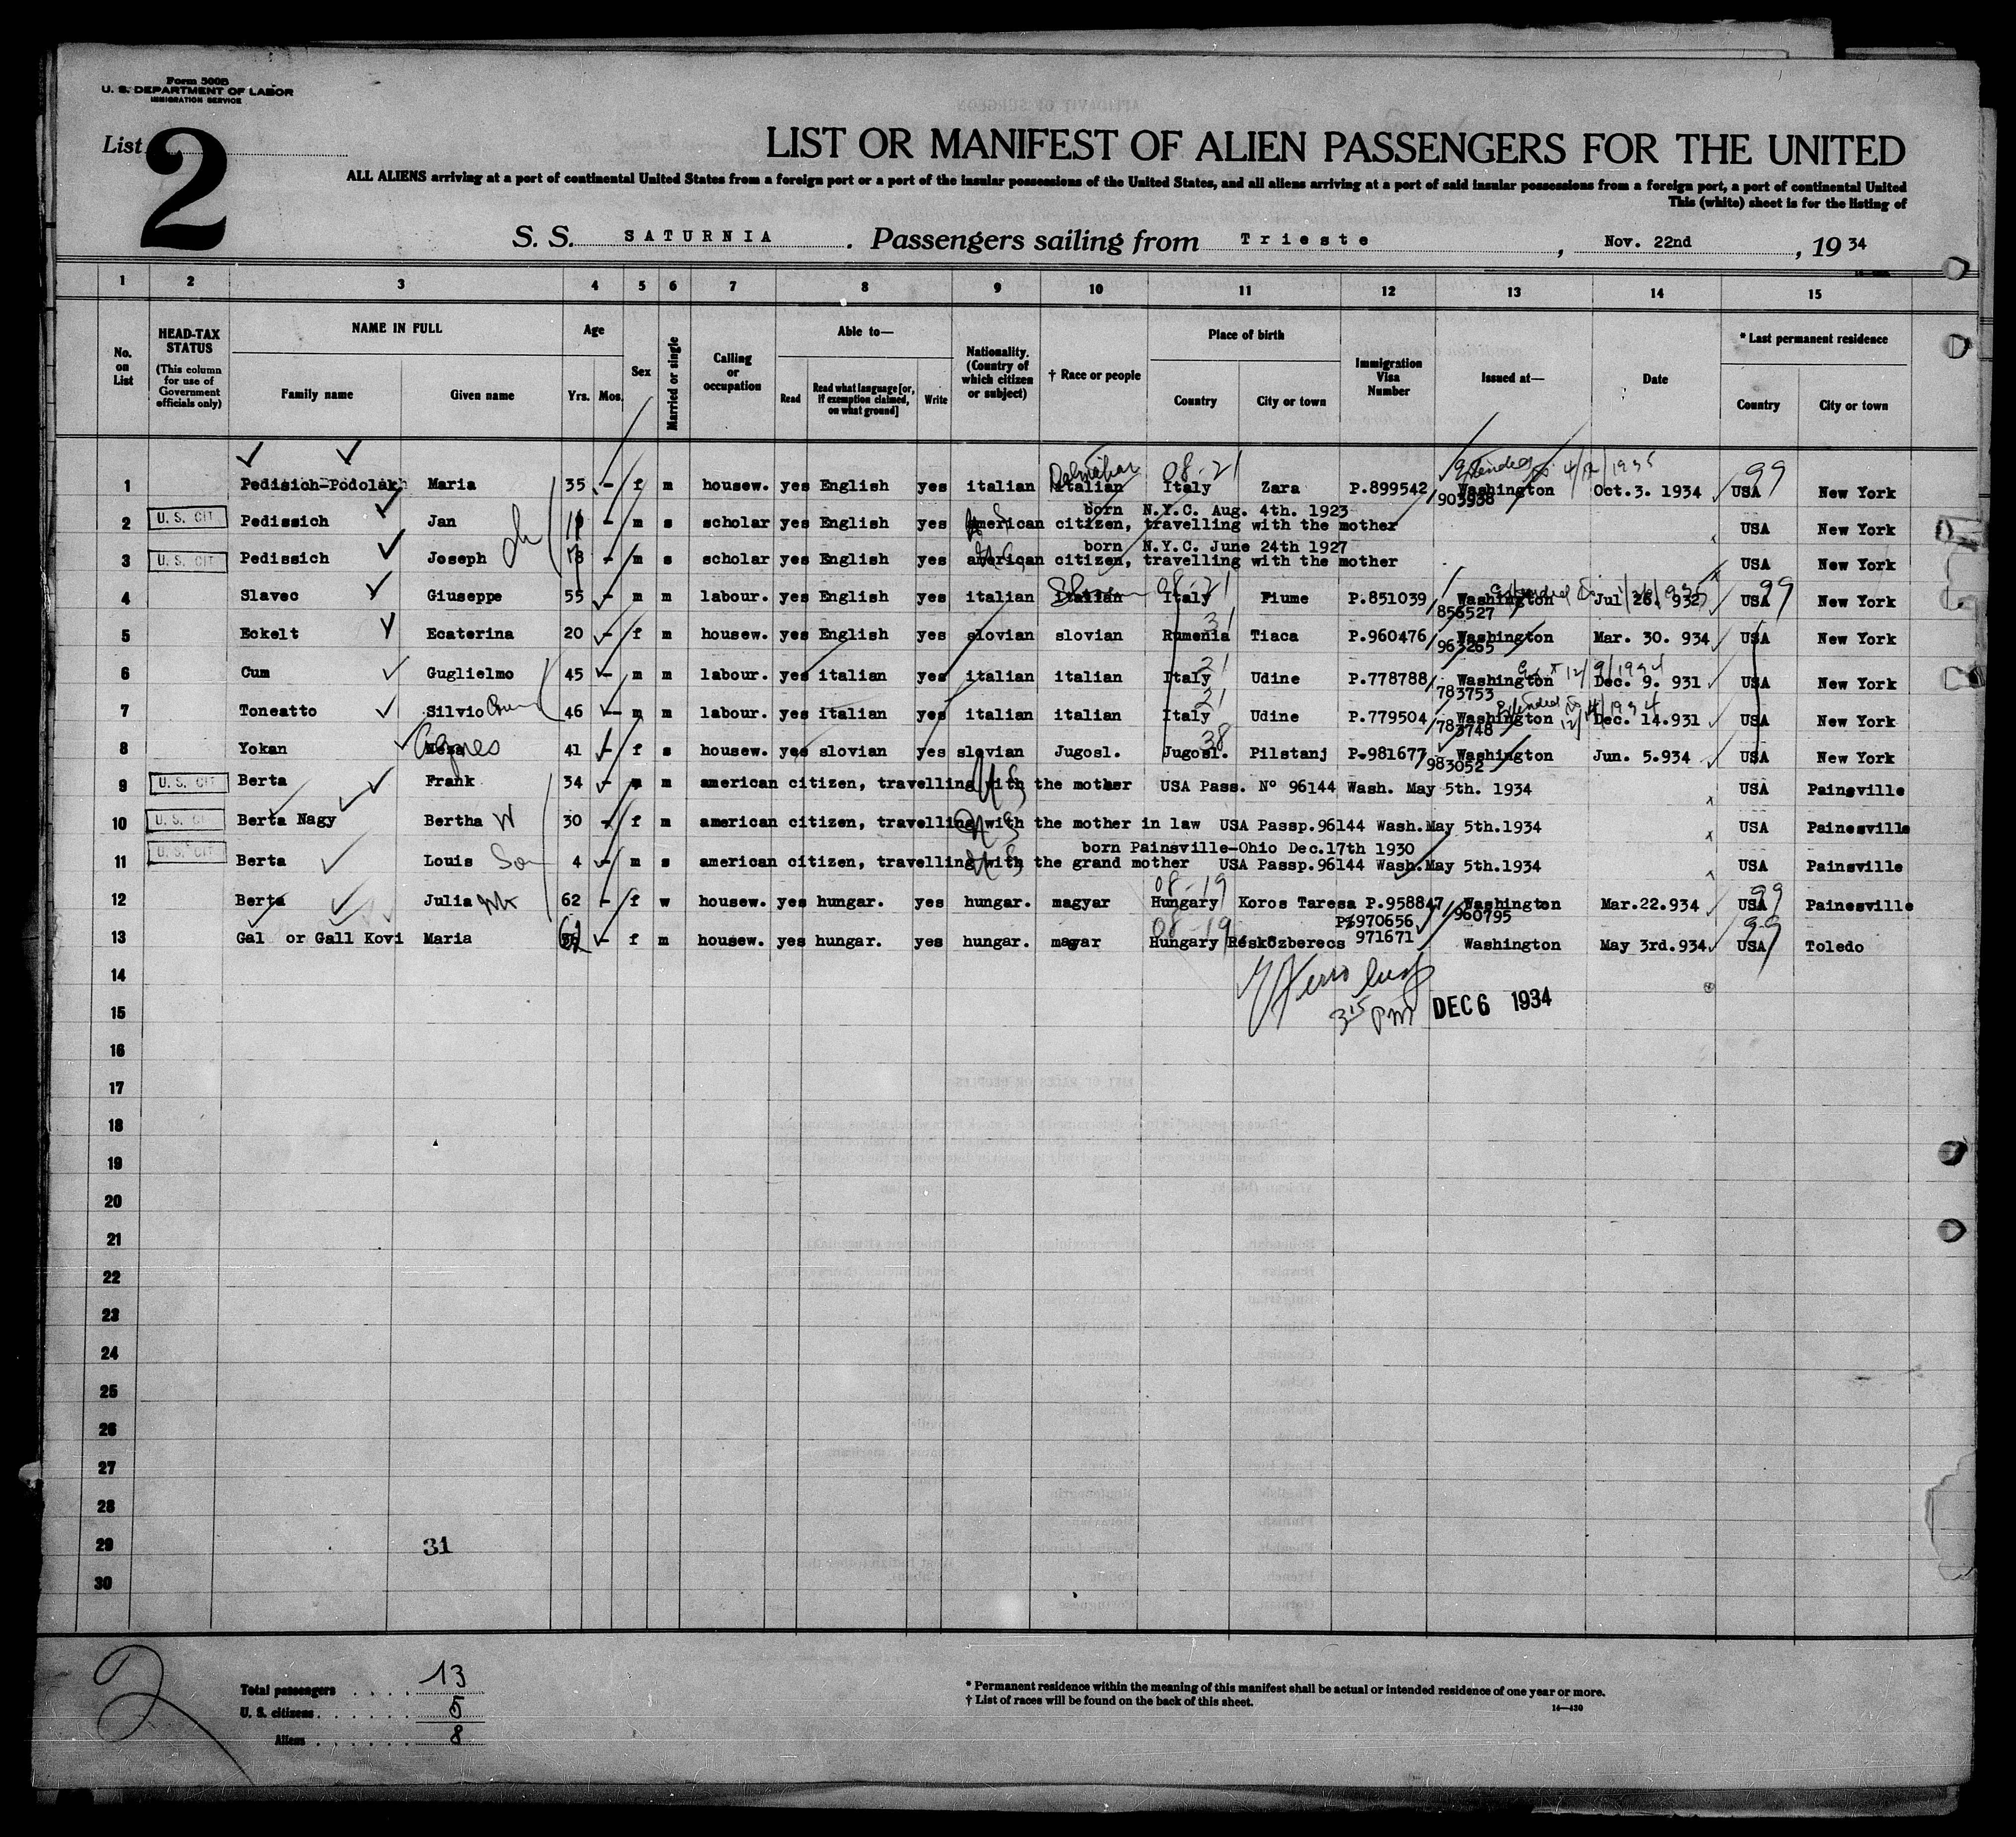 Form 500B
U. S. DEPARTMENT OF LABOR
IMMIGRATION SERVICE
List 2
LIST OR MANIFEST OF ALIEN PASSENGERS FOR THE UNITED
ALL ALIENS arriving at a port of continental United States from a foreign port or a port of the insular possessions of the United States, and all aliens arriving at a port of said insular possessions from a foreign port, a port of continental United
This (white) sheet is for the listing of
S. S. SATURNIA. Passengers sailing from Trieste, Nov. 22nd, 19 34
1 2 3 4 5 6 7 8 9 10 11 12 13 14 15
No. on List
HEAD-TAX STATUS (This column for use of Government officials only)
NAME IN FULL
Family name Given name
Age
Yrs. Mos.
Sex
Married or single
Calling or occupation
Able to—
Read Read what language [or, if exemption claimed, on what ground] Write
Nationality. (Country of which citizen or subject)
† Race or people
Place of birth
Country City or town
Immigration Visa Number
Issued at—
Date
* Last permanent residence
Country City or town
08-21 Extended to 4/12/1935 99
1 Pedisich-Podolakh Maria 35 - f m housew. yes English yes italian italian Italy Zara P.899542 Washington Oct.3. 1934 USA New York
903938
born N.Y.C. Aug. 4th. 1923
2 U. S. CIT Pedissich Jan - m s scholar yes English yes american citizen, travelling with the mother USA New York
born N.Y.C. June 24th 1927
3 U. S. CIT Pedissich Joseph - m s scholar yes English yes american citizen, travelling with the mother USA New York
08-21 99
4 Slavec Giuseppe 55 - m m labour. yes English yes italian italian Italy Fiume P.851039 Washington Jul 26. 932 USA New York
856527
31
5 Eckelt Ecaterina 20 - f m housew. yes English yes slovian slovian Rumenia Tiaca P.960476 Washington Mar. 30. 934 USA New York
963265
21 Ext 12/9/1934
6 Cum Guglielmo 45 - m m labour. yes italian yes italian italian Italy Udine P.778788 Washington Dec. 9. 931 USA New York
783753
21 Extended to 12/14/1934
7 Toneatto Silvio 46 - m m labour. yes italian yes italian italian Italy Udine P.779504 Washington Dec. 14.931 USA New York
783748
38
8 Yokan Agnes 41 - f s housew. yes slovian yes slovian Jugosl. Jugosl. Pilstanj P.981677 Washington Jun. 5.934 USA New York
983052
9 U. S. CIT Berta Frank 34 - m m american citizen, travelling with the mother USA Pass. Nº 96144 Wash. May 5th. 1934 USA Painsville
10 U. S. CIT Berta Nagy Bertha W 30 - f m american citizen, travelling with the mother in law USA Passp.96144 Wash.May 5th.1934 USA Painesville
born Painsville-Ohio Dec.17th 1930
11 U. S. CIT Berta Louis Son 4 - m s american citizen, travelling with the grand mother USA Passp.96144 Wash.May 5th.1934 USA Painsville
08-19 99
12 Berta Julia 62 - f w housew. yes hungar. yes hungar. magyar Hungary Koros Taresa P.958847 Washington Mar.22.934 USA Painesville
960795
08-19 970656 99
13 Gal or Gall Kovi Maria - f m housew. yes hungar. yes hungar. magyar Hungary Résközberecs 971671 Washington May 3rd.934 USA Toledo
14
3 15 PM DEC 6 1934
15
16
17
18
19
20
21
22
23
24
25
26
27
28
29
31
30
2
Total passengers . . . . 13
U. S. citizens . . . . . . 5
Aliens . . . . . . 8
* Permanent residence within the meaning of this manifest shall be actual or intended residence of one year or more.
† List of races will be found on the back of this sheet.
14—430